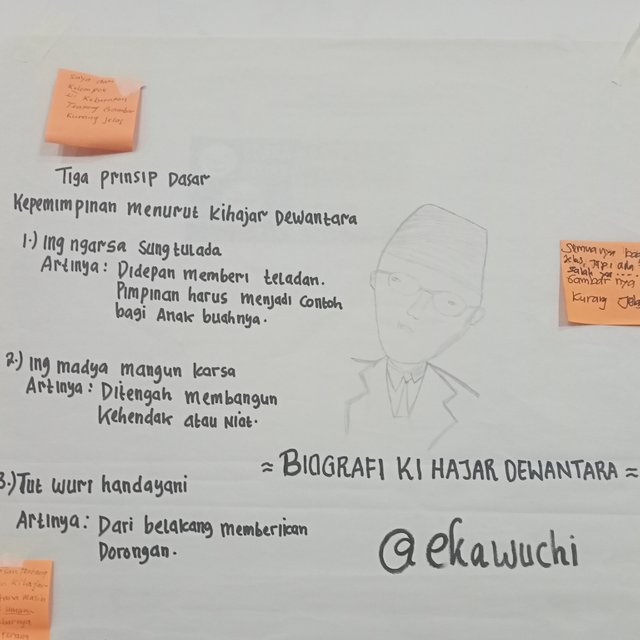 Saya dan
Kelompok
Tentang Gambar
Kurang jelas
Tiga Prinsip Dasar
Kepemimpinan menurut Kihajar Dewantara
1.) Ing ngarsa sung tulada
Artinya : Didepan memberi teladan.
Pimpinan harus menjadi contoh
bagi Anak buahnya.
2.) Ing madya mangun karsa
Artinya : Ditengah membangun
Kehendak atau Niat.
3.) Tut wuri handayani
Artinya : Dari belakang memberikan
Dorongan.
Semuanya
tapi ada
salah
Gambarnya
Kurang Jelas
≈ BIOGRAFI KI HAJAR DEWANTARA ≈
@ekawuchi
Kihajar
masih